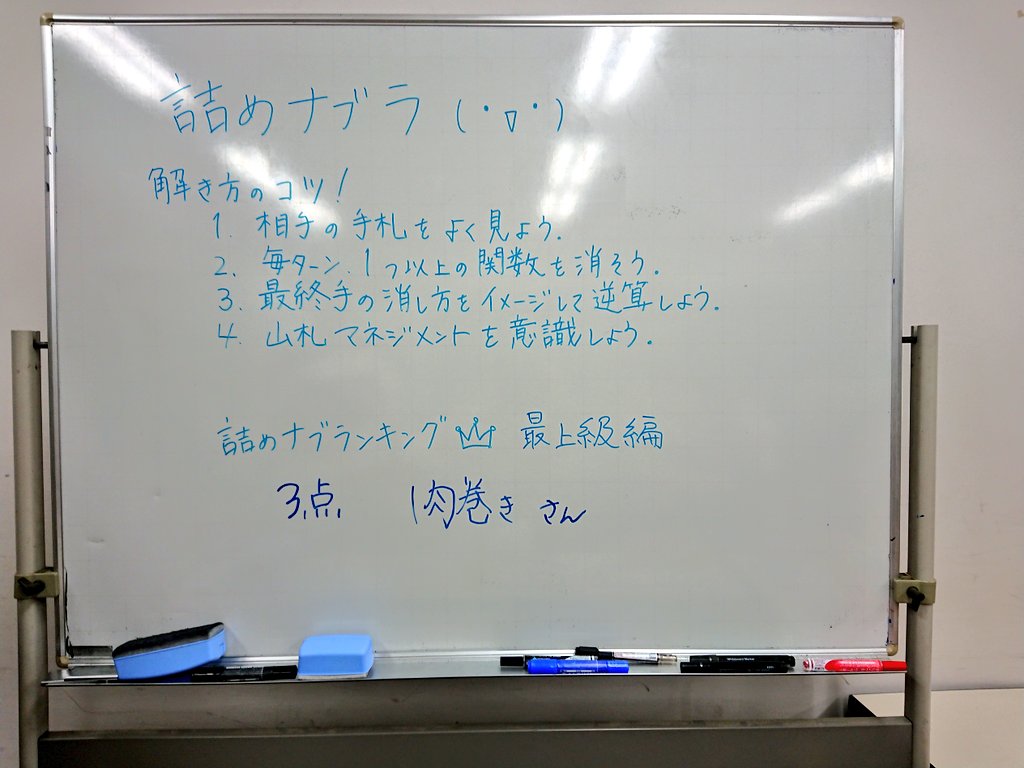 詰めナブラ (・▽・)
解き方のコツ!
1. 相手の手札をよく見よう.
2. 毎ターン、1つ以上の関数を消そう.
3. 最終手の消し方をイメージして逆算しよう.
4. 山札マネジメントを意識しよう.
詰めナブランキング 最上級編
3点 肉巻きさん